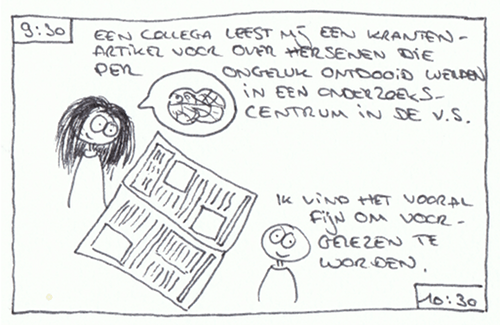 9:30
EEN COLLEGA LEEST MIJ EEN KRANTEN-
ARTIKEL VOOR OVER HERSENEN DIE
PER ONGELUK ONTDOOID WERDEN
IN EEN ONDERZOEKS-
CENTRUM IN DE V.S.
IK VIND HET VOORAL
FIJN OM VOOR-
GELEZEN TE
WORDEN.
10:30